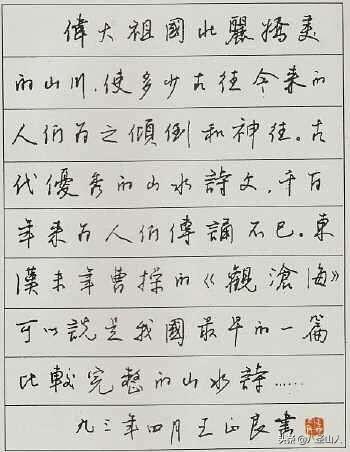 偉大祖國壯麗嬌美
的山川，使多少古往今来的
人们为之傾倒和神往。古
代優秀的山水詩文，千百
年来为人们傳誦不已。東
漢末年曹操的《觀滄海》
可以說是我國最早的一篇
比較完整的山水詩……
九三年四月王正良書